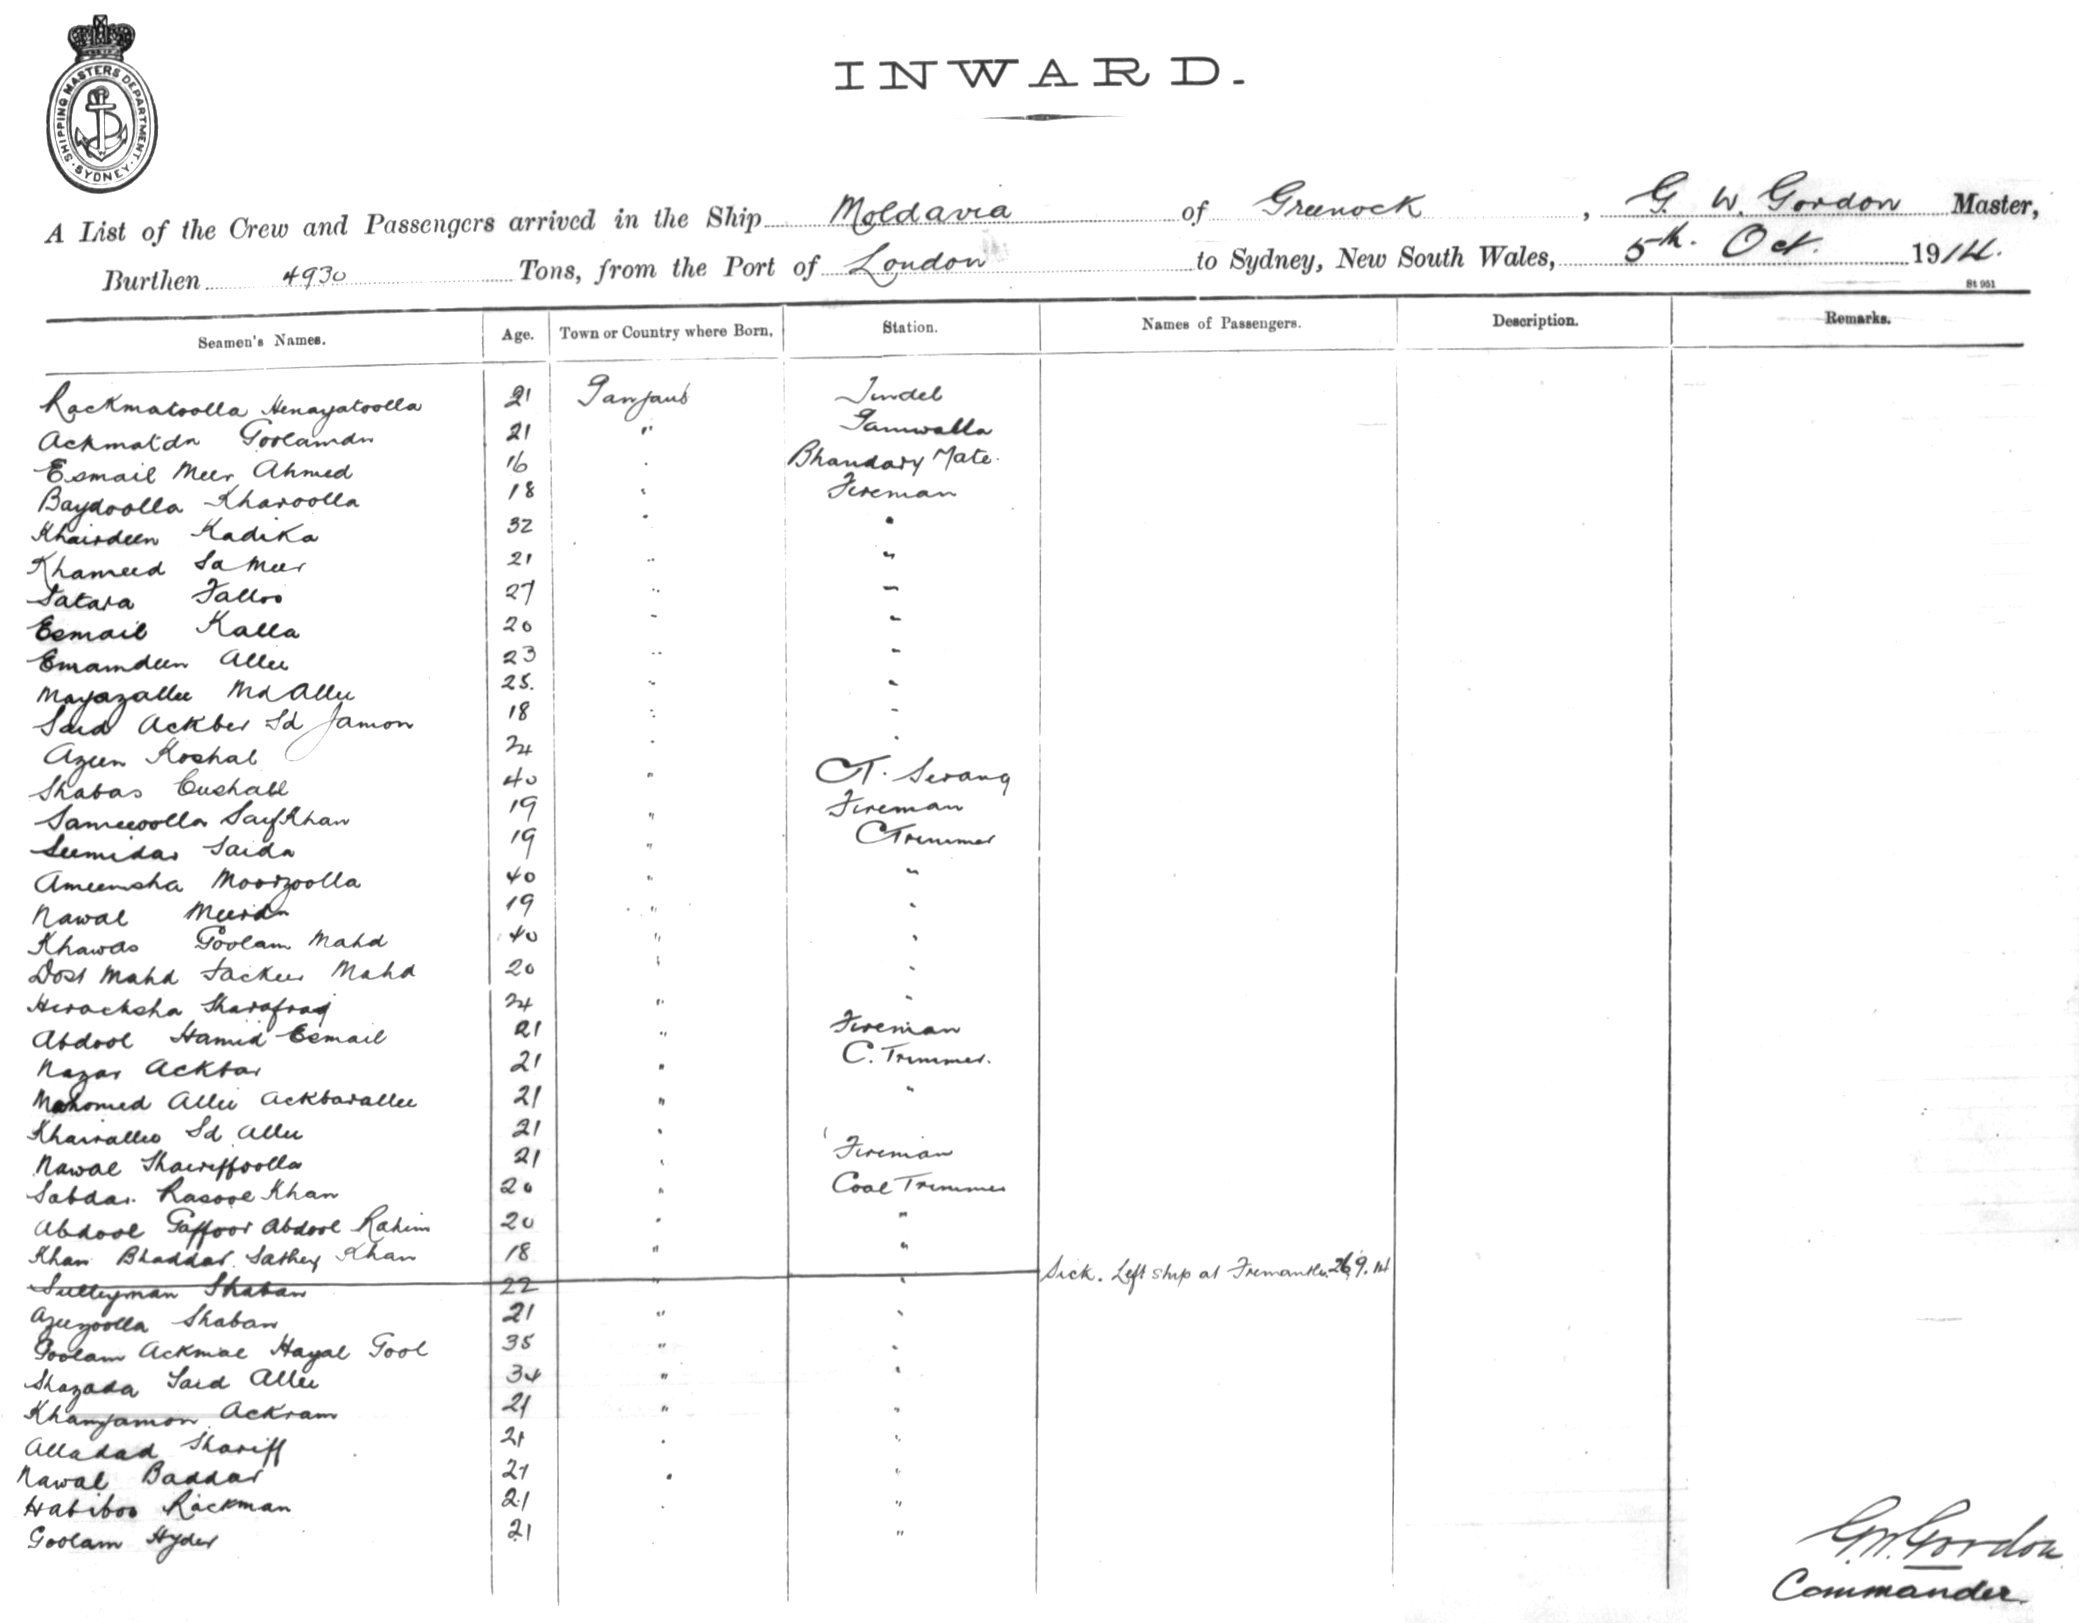 SHIPPING MASTERS DEPARTMENT · SYDNEY ·
INWARD.
A List of the Crew and Passengers arrived in the Ship Moldavia of Greenock, G. W. Gordon Master,
Burthen 4930 Tons, from the Port of London to Sydney, New South Wales, 5th. Oct. 1914.
St 951
Seamen's Names. Age. Town or Country where Born, Station. Names of Passengers. Description. Remarks.
Rackmatoolla Henayatoolla 21 Panjaub Tindel
Ackmatdn Goolamdn 21 " Paniwalla
Esmail Meer Ahmed 16 " Bhandary Mate.
Baydoolla Kharoolla 18 " Fireman
Khairdeen Kadika 32 " "
Khameed Sa Meer 21 " "
Satara Falloo 27 " "
Esmail Kalla 20 " "
Emamdeen Allee 23 " "
Mayazallee Md Allee 25. " "
Said Ackber Sd Jamon 18 " "
Azeen Koshal 24 " "
Shabas Cushall 40 " CT. Serang
Sameeoolla Saif Khan 19 " Fireman
Seemidar Saida 19 " C Trimmer
Ameemsha Moorzoolla 40 " "
Nawal Meeirdn 19 " "
Khawas Goolam Mahd 40 " "
Dost Mahd Fackeer Mahd 20 " "
Herocksha Sharafraj 24 " "
Abdool Hamid Esmail 21 " Fireman
Nazar Ackbar 21 " C. Trimmer.
Mahomed Allee Ackbarallee 21 " "
Khairalleo Sd Allee 21 "
Nawal Shaeriffoolla 21 " Fireman
Sabdar Rasool Khan 20 " Coal Trimmer
Abdool Gaffoor Abdool Rahim 20 " "
Khan Bhaddar Sathey Khan 18 " "
Sulleyman Shaban 22 " " Sick. Left ship at Fremantle. 26.9.14
Azeezoolla Shaban 21 " "
Goolam Ackmal Hayal Gool 35 " "
Shazada Said Allee 34 " "
Khamjamon Ackram 21 " "
Alladad Shariff 21 " "
Nawal Baddar 21 " "
Habiboo Rackman 21 " "
Goolam Hyder 21 "
G. W. Gordon
Commander.